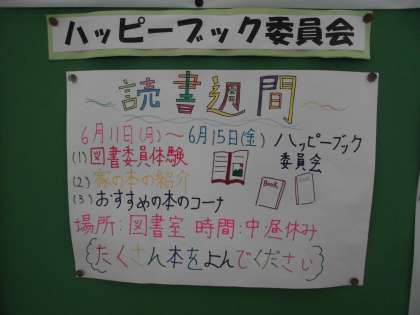 ハッピーブック委員会
読書週間
6月11日(月)～6月15日(金)
ハッピーブック
委員会
(1)図書委員体験
(2)家の本の紹介
(3)おすすめの本のコーナ
Book
Book
場所:図書室 時間:中昼休み
たくさん本をよんでください